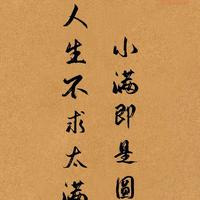 人生不求太满
小满即是圓